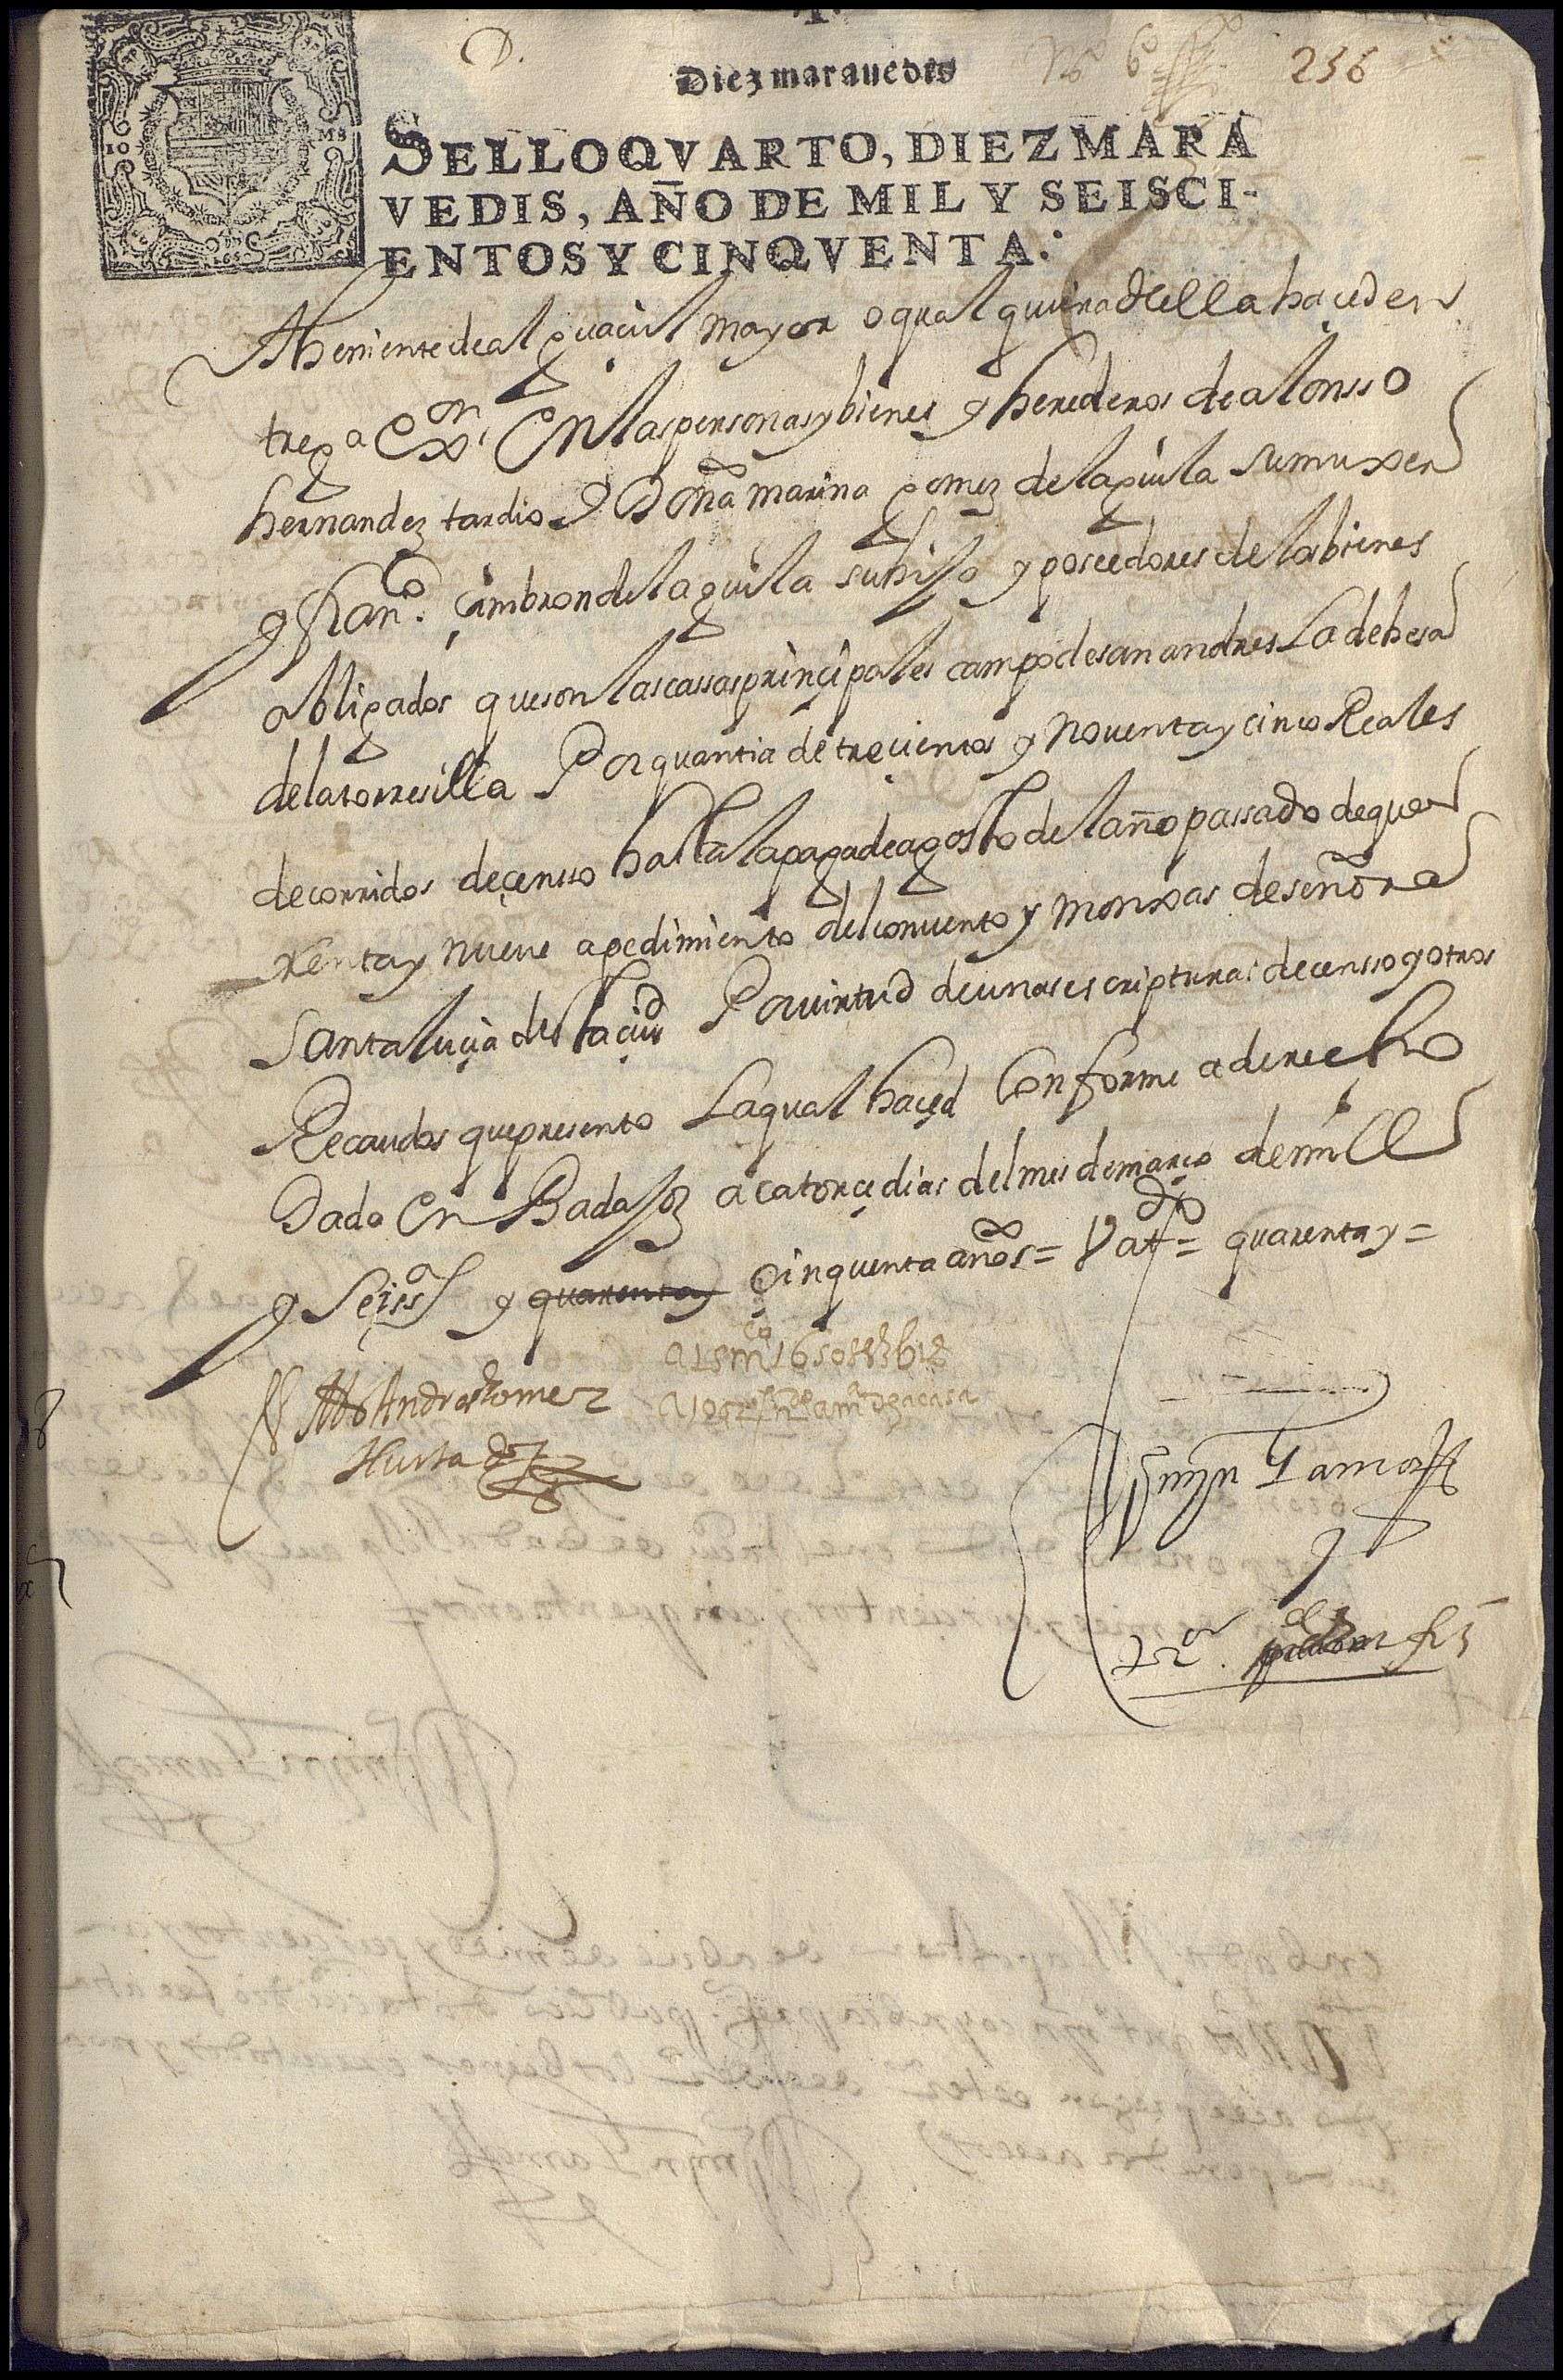 Diez marauedis
236
SELLO QVARTO, DIEZ MARA
VEDIS, AÑO DE MIL Y SEISCI-
ENTOS Y CINQVENTA.
Theniente de alguacil mayor o qualquiera de ella haced en
trega exon en las personas y bienes y herederos de alonsso
hernandez tardio y Doña marina gomez de laguila su muxer
y fran.co çimbron de laguila su hijo y poseedores de los bienes
obligados que son las cassas prinçipales campo de san andres La dehesa
de la torresilla Por quantia de treçientos y noventa y cinco Reales
de corridos de çensso hasta la paga de agosto del año passado de qua
renta y nueve a pedimiento del convento y monxas de señora
santa luçia desta çiud Por virtud de unas escripturas de censso y otros
Recaudos que presento La qual haçed Conforme a derecho
Dada En Badajoz a catorçe dias del mes de março de mill
y Seiss y quarenta y çinquenta años = Va tdo = quarenta y =
Andres Gomez
Hurtado
Tamo